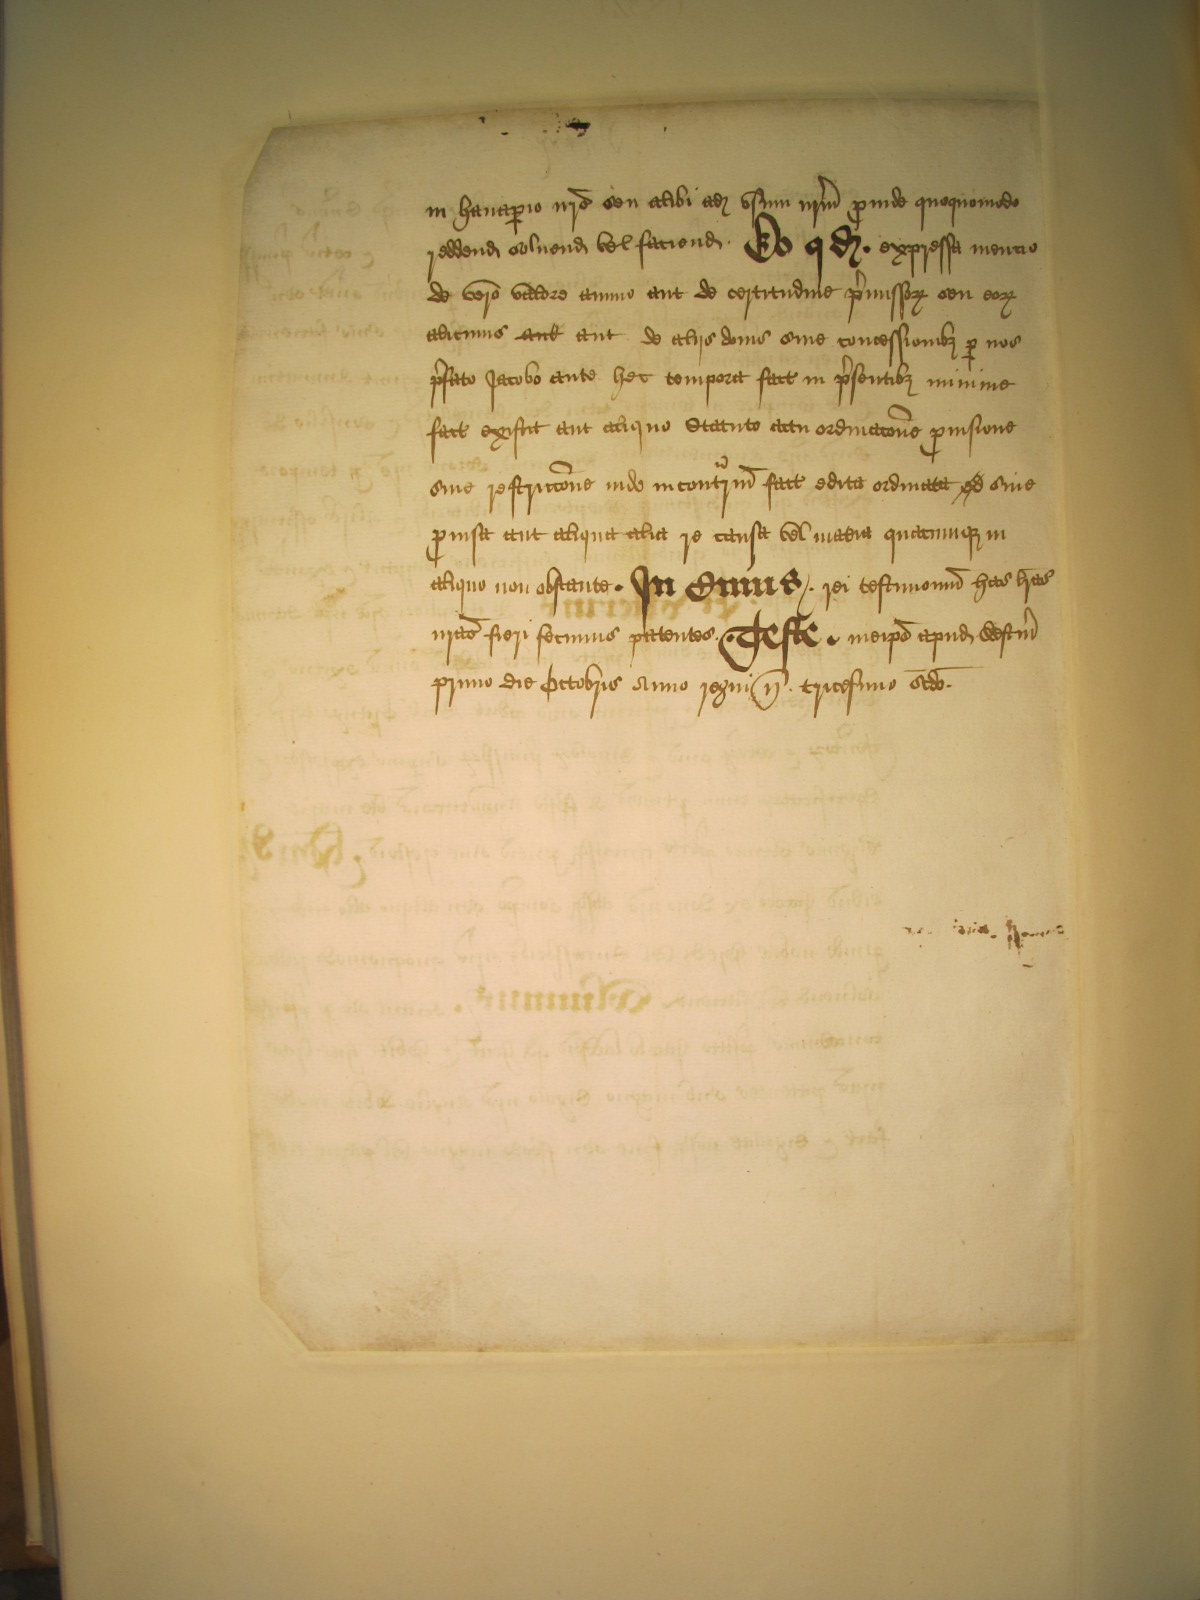 in hanap̱io nr̄o seu alibi ad usum nr̄m p̱inde quoquomodo
reddend solvend vel faciend. Eo qd. expressa mencio
de vero valore annuo aut de certitudine p̄missoꝝ seu eoꝝ
alicuius aut de aliis donis sive concessionibꝫ ꝑ nos
p̄fato Jacobo ante hec tempora fact in p̄sentibꝫ minime
fact existit aut aliquo Statuto actu ordinac̄one ꝓvisione
sive restricc̄one inde incontrm̄ fact edita ordinata sive
ꝓvisa aut aliqua alia re causa vel mat̄ia quacumqꝫ in
aliquo non obstante. In Cuius. rei testimoniū has lr̄as
nr̄as fieri fecimus patentes. Teste. meip̄o apud Westm̄
primo die Octobris Anno regni n̄. tricesimo sc̄do.